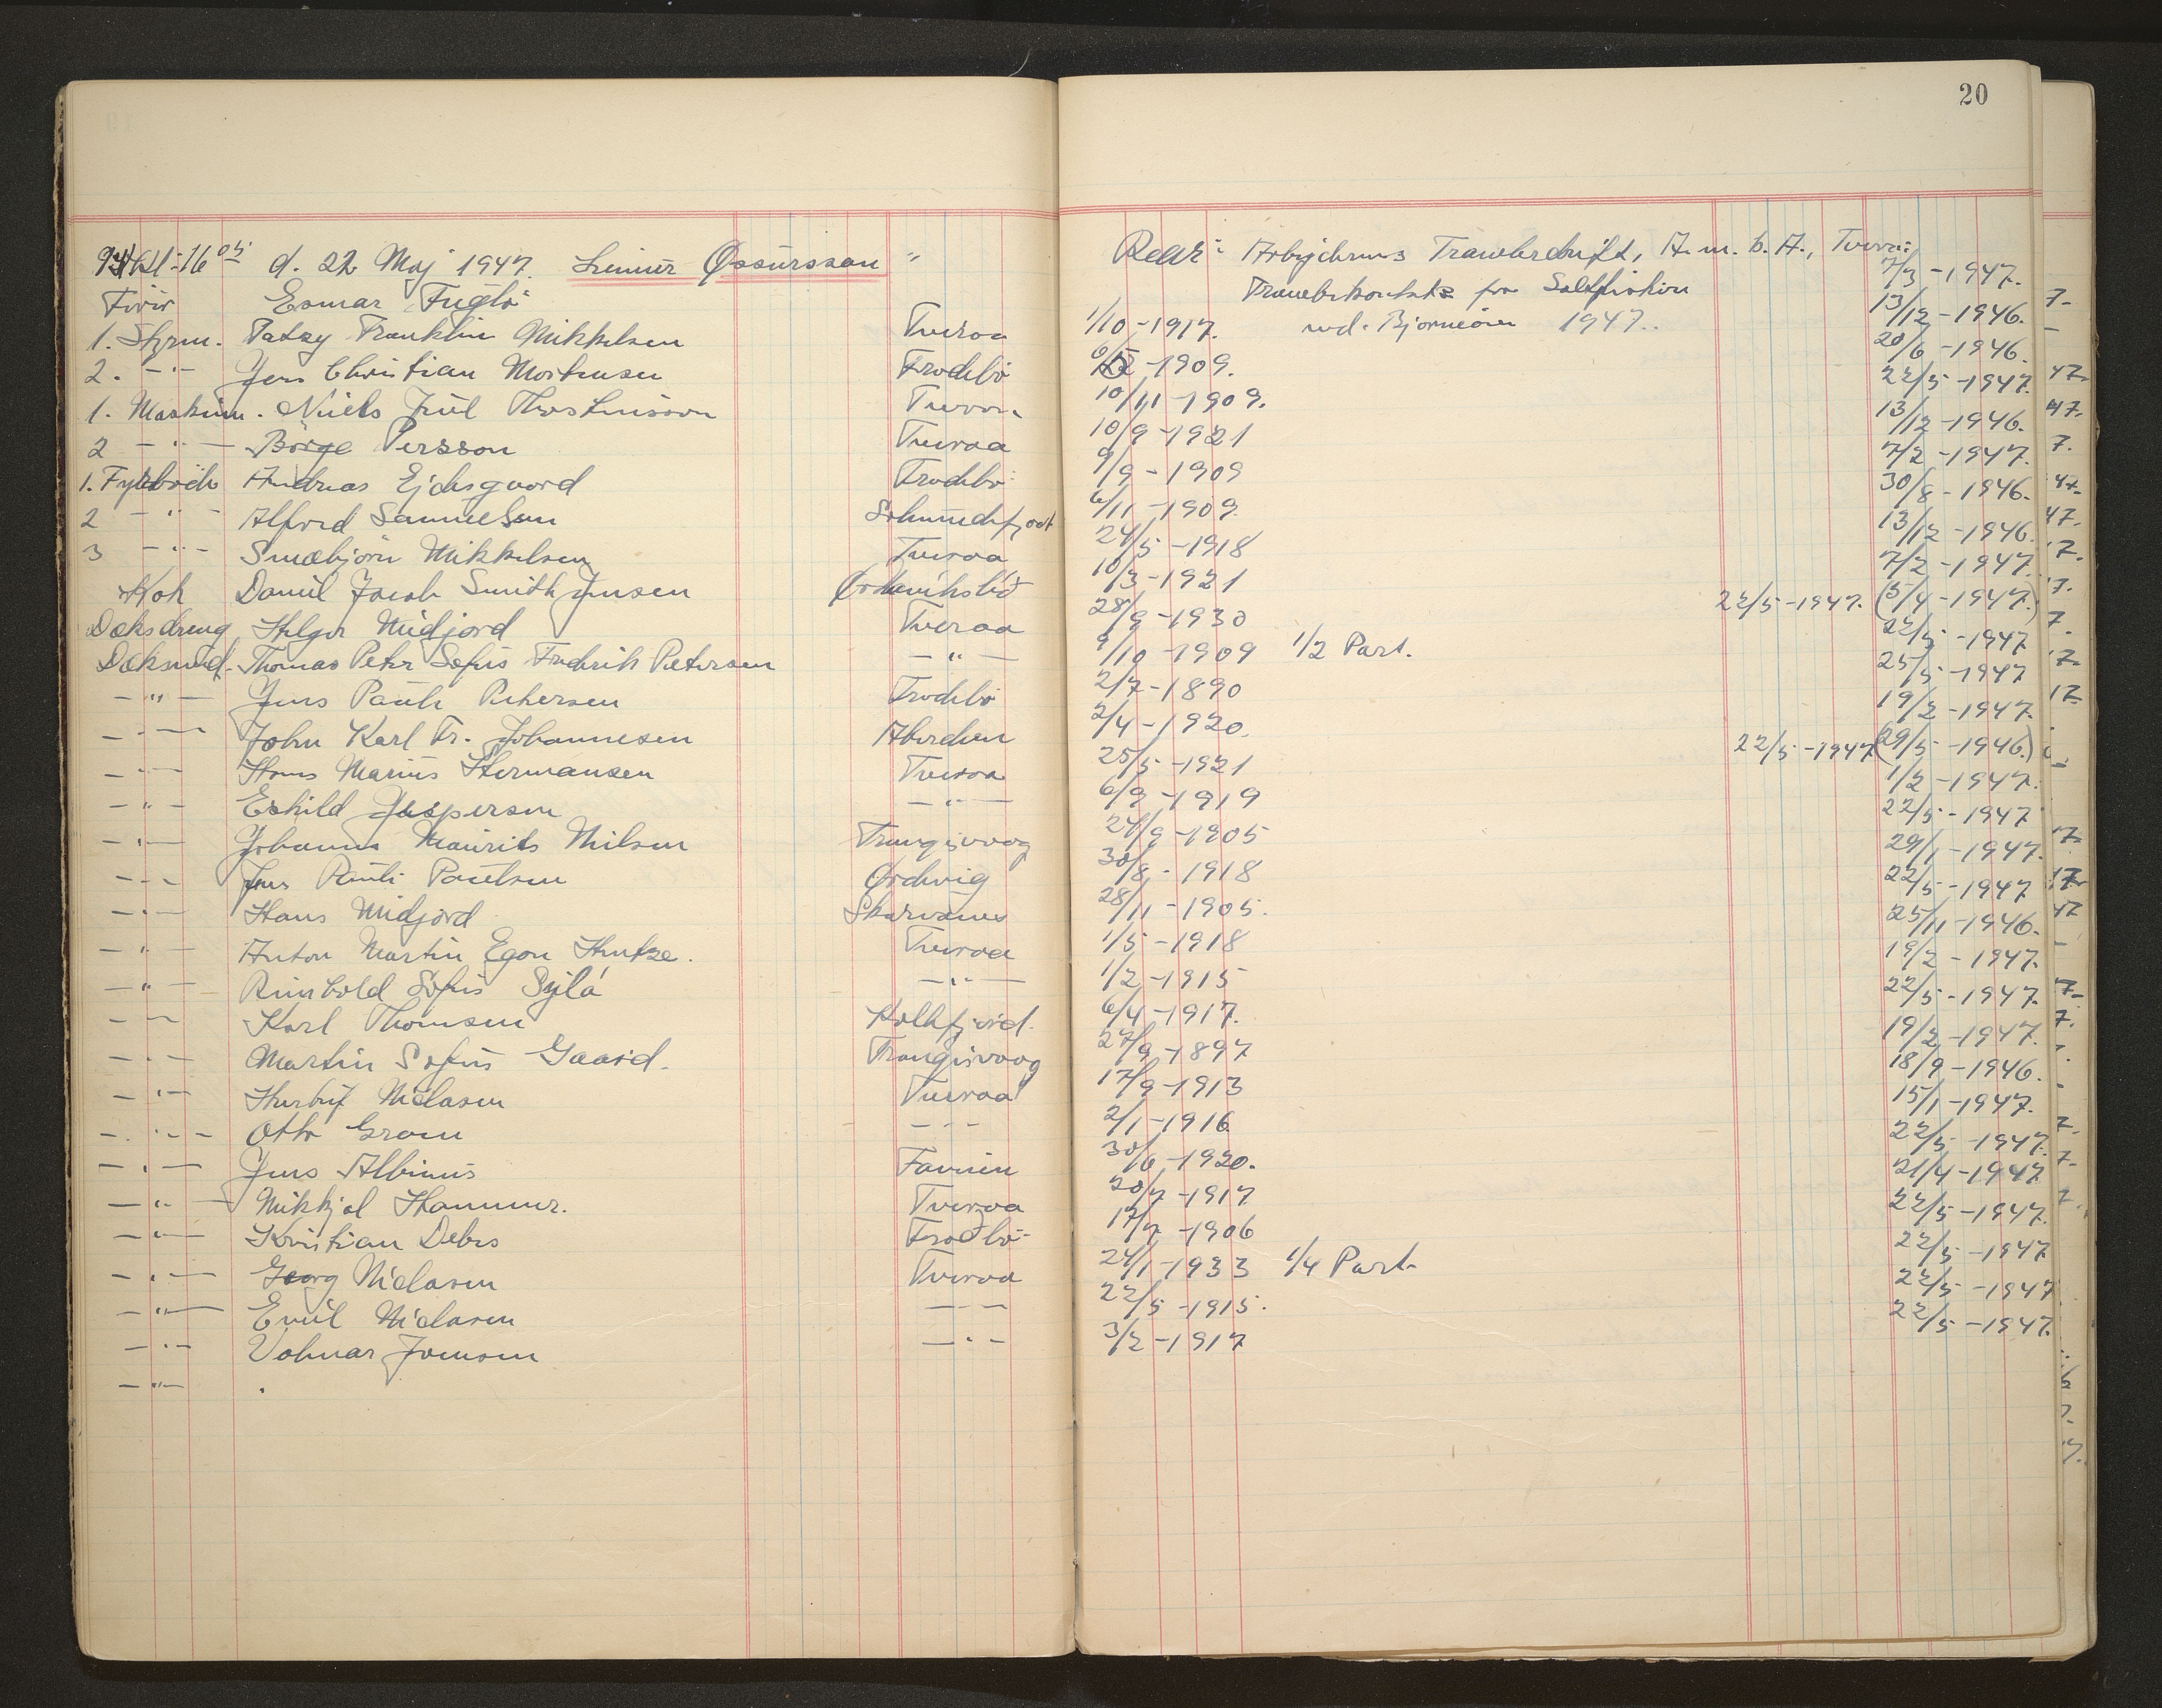 20
Kl. 16 d. 22 Maj 1947. Leinur Øssursson " Reder: Arbejdernes Trawlerdrift, A.m.b.A., Tveraa 7/3 -1947.
Esmar Fuglø Trawlerkontrakt for Saltfiskeri 13/12 -1946.
1. Styrm. Patsy Franklin Mikkelsen Tveraa 1/10 -1917. ved Bjørneøen 1947. 20/6 -1946.
2. -"- Jens Christian Mortensen Frodebø -1909. 22/5 -1947.
1. Maskinm. Niels Juul Thorsteinsson Tveraa 10/11 -1909. 13/12 -1946.
2 -"- Börge Persson Tveraa 10/9 -1921 7/2 -1947.
1. Fyrbøder Andreas Ejdesgaard Frodebø 9/9 -1909 30/8 -1946.
2 -"- Alfred Samuelsen 6/11 -1909. 13/12 -1946.
3 -"- Sneebjörn Mikkelsen Tveraa 24/5 -1918 7/2 -1947.
Kok Daniel Jacob Smith Jensen 10/3 -1921 22/5 -1947. (5/4 -1947.)
Dæksdreng Helger Midjord Tveraa 28/9 -1930 22/5 -1947
Dæksmd. Thomas Peter Sofus Fredrik Petersen -"- 9/10 -1909 1/2 Part. 25/5 -1947
-"- Jens Pauli Petersen Frodebø 2/7 -1890 19/2 -1947.
-"- John Karl Fr. Johannesen Aberdeen 2/4 -1920. 22/5 -1947 (29/5 -1946.)
-"- Hans Marius Hermansen Tveraa 25/5 -1921 1/2 -1947.
-"- Eskild Jespersen -"- 6/9 -1919 22/5 -1947
-"- Johannes Maurits Nilsen Trangisvaag 24/9 -1905 29/1 -1947.
-"- Jens Pauli Poulsen Ördevig 30/8 -1918 22/5 -1947
-"- Hans Midjord Skarvanes 28/11 -1905. 25/11 -1946.
-"- Anton Martin Egon Hentze. Tveraa 1/5 -1918 19/2 -1947.
-"- Reinhold Sofus Sylá -"- 1/2 -1915 22/5 -1947.
-"- Karl Thomsen Kollefjord. 6/4 -1917. 19/2 -1947.
-"- Martin Sofus Gaard. Trangisvaag 27/9 -1897 18/9 -1946.
-"- Herluf Niclasen Tveraa 17/9 -1913 15/1 -1947.
-"- Otto Gram -"- 2/1 -1916 22/5 -1947.
-"- Jens Albinus Famien 30/6 -1920. 21/4 -1947
-"- Mikkjal Hammer. Tveraa 20/7 -1917 22/5 -1947.
-"- Kristian Debes Frodbø 17/7 -1906 22/5 -1947
-"- Georg Niclasen Tveraa 24/1 -1933 1/4 Part. 22/5 -1947
-"- Emil Niclasen -"- 22/5 -1915. 22/5 -1947.
-"- Volmar Joensen -"- 3/2 -1917
-"-